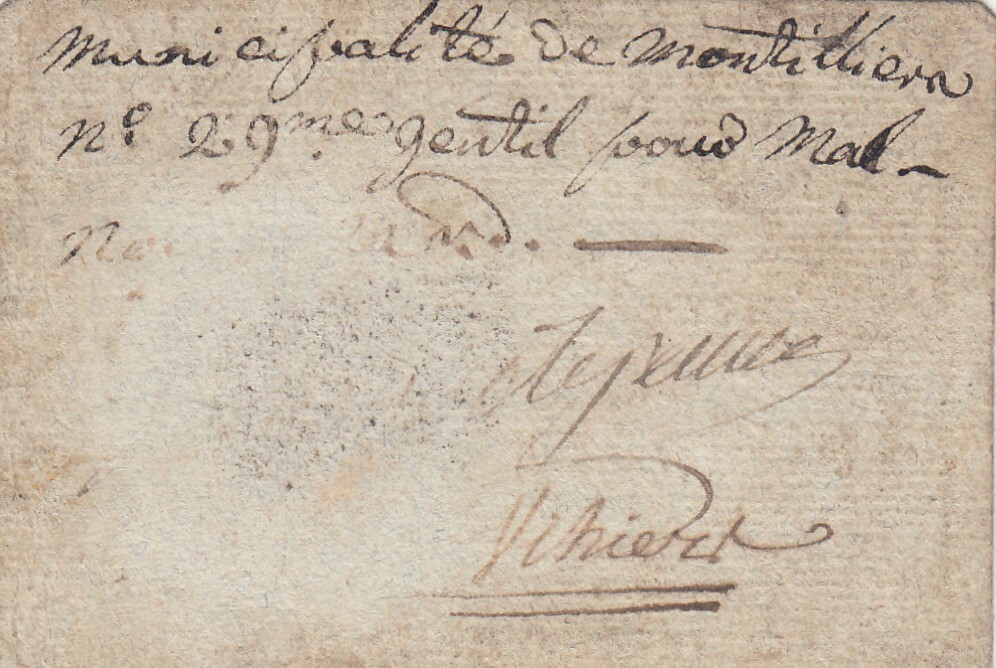 Municipalité de Montilliers
n° 29me gentil pour Mal-
Vihiers